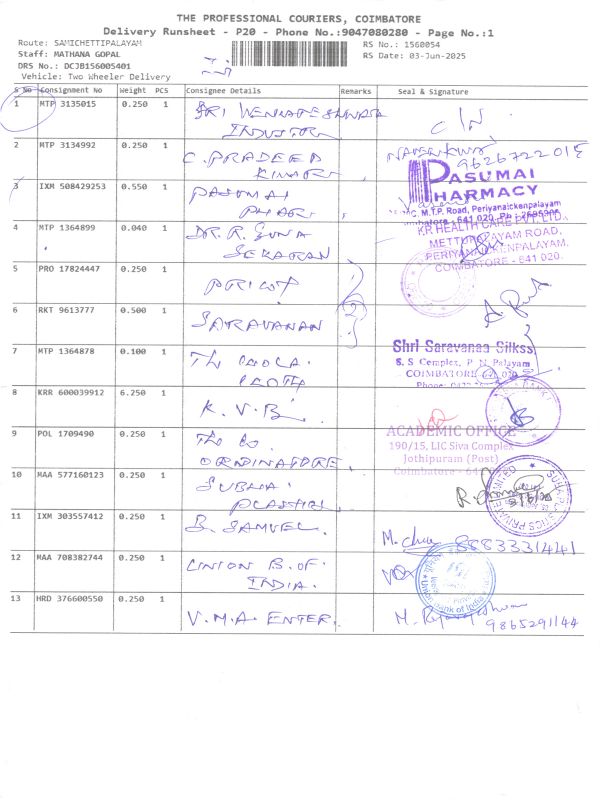 THE PROFESSIONAL COURIERS, COIMBATORE
Delivery Runsheet - P20 - Phone No.:9047080280 - Page No.:1
Route: SAMICHETTIPALAYAM
RS No.: 1560054
Staff: MATHANA GOPAL
RS Date: 03-Jun-2025
DRS No.: DCJB156005401
Vehicle: Two Wheeler Delivery
S No Consignment No Weight PCS Consignee Details Remarks Seal & Signature
1 MTP 3135015 0.250 1 SRI VENKATESHWARA
INDUSTRY
2 MTP 3134992 0.250 1 C. PRADEEP
KUMAR
9626722015
3 IXM 508429253 0.550 1 PASUMAI
PHAR
PASUMAI
PHARMACY
M.T.P. Road, Periyanaickenpalayam
4 MTP 1364899 0.040 1 DR. R. GUNA
SEKARAN
KR HEALTH CARE PVT. LTD.
METTUPALAYAM ROAD,
PERIYANAICKENPALAYAM,
COIMBATORE - 641 020.
5 PRO 17824447 0.250 1 PRICOL
6 RKT 9613777 0.500 1 SARAVANAN
Shri Saravanaa Silkss
S. S Complex, P. N. Palayam
COIMBATORE-641 020
7 MTP 1364878 0.100 1 The
8 KRR 600039912 6.250 1 K.V.B.
ACADEMIC OFFICE
190/15, LIC Siva Complex
Jothipuram (Post)
Coimbatore - 641
9 POL 1709490 0.250 1 The Co
ORDINATORE
10 MAA 577160123 0.250 1 SUBHA
PLASTICS
11 IXM 303557412 0.250 1 B. SAMUEL
8883331441
12 MAA 708382744 0.250 1 UNION B. OF.
INDIA.
Union Bank of India
13 HRD 376600550 0.250 1 V.M.A. ENTER.
9865291144